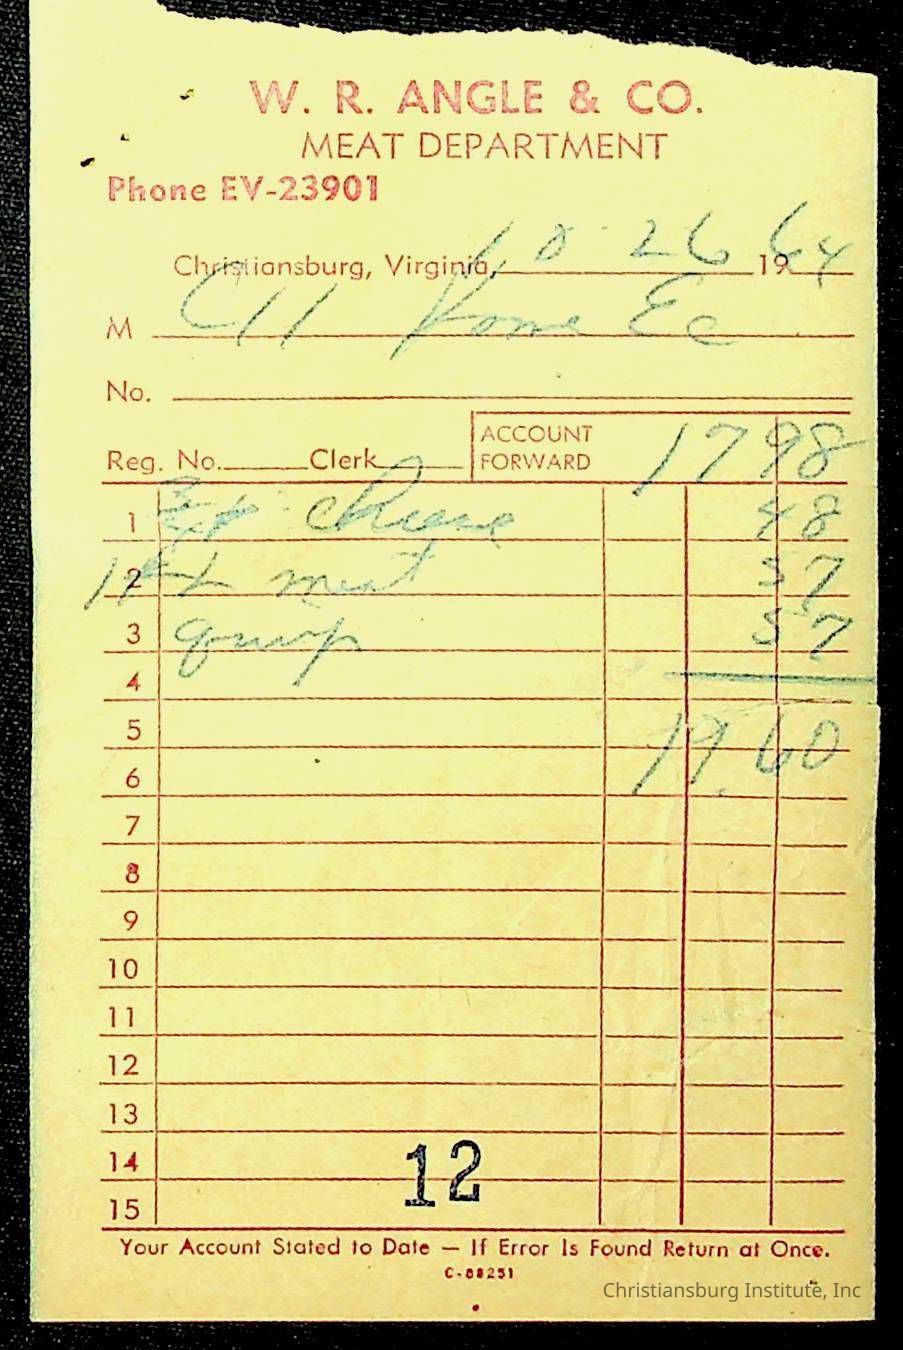 W. R. ANGLE & CO.
MEAT DEPARTMENT
Phone EV-23901
Christiansburg, Virginia, 10-26 1964
M CII Home Ec
No.
Reg. No. Clerk ACCOUNT FORWARD 17 98
1 cheese 48
2 meat 57
3 57
4
5 19.60
6
7
8
9
10
11
12
13
14 12
15
Your Account Stated to Date — If Error Is Found Return at Once.
C-88251
Christiansburg Institute, Inc